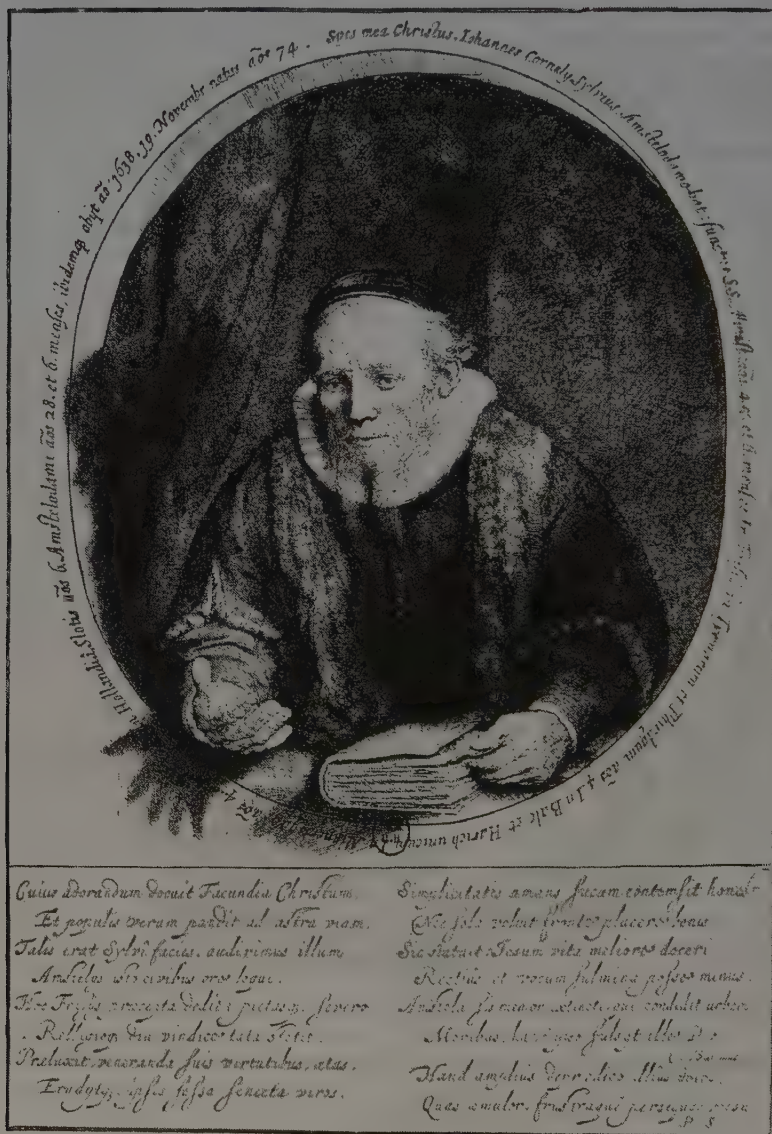 Spes mea Christus. Iohannes Cornely Sylvius, Amstelodamobat: functus S.S.
Tiernarum et Phirdgum aõs 4. In Balc et Harich unicum
aõs 4
n Hollandiæ, Slotis aõs 6. Amstelodami aõs 28. et 6. menses, ibidemq obijt aõ 1638. 19. Novembr natus aõs 74.
Cuius adorandum docuit Facundia Christum,
Et populis veram pandit ad astra viam,
Talis erat Sylvî facies. audivimus illum
Amstelijs isto civibus ore loqui.
Hoc Frisijs præcepta dedit; pietasq. severo
Religioq. diu vindice tuta stetit.
Præluxit, veneranda suis virtutibus, ætas.
Erudytq. ipsos fessa senecta viros.
Simplicitatis amans fucum contemsit honesti
Nec sola voluit fronte placere bonis
Sic statuit: Iesum vita meliore doceri
Rectius et vocum fulmina posse minus.
Amstela sis memor extincti, qui condidit urbem
Moribus, hanc
C. Barleus
Haud amplius deprædico illius dotes,
Quas æmulor, frustraque persequor versu
P. S.